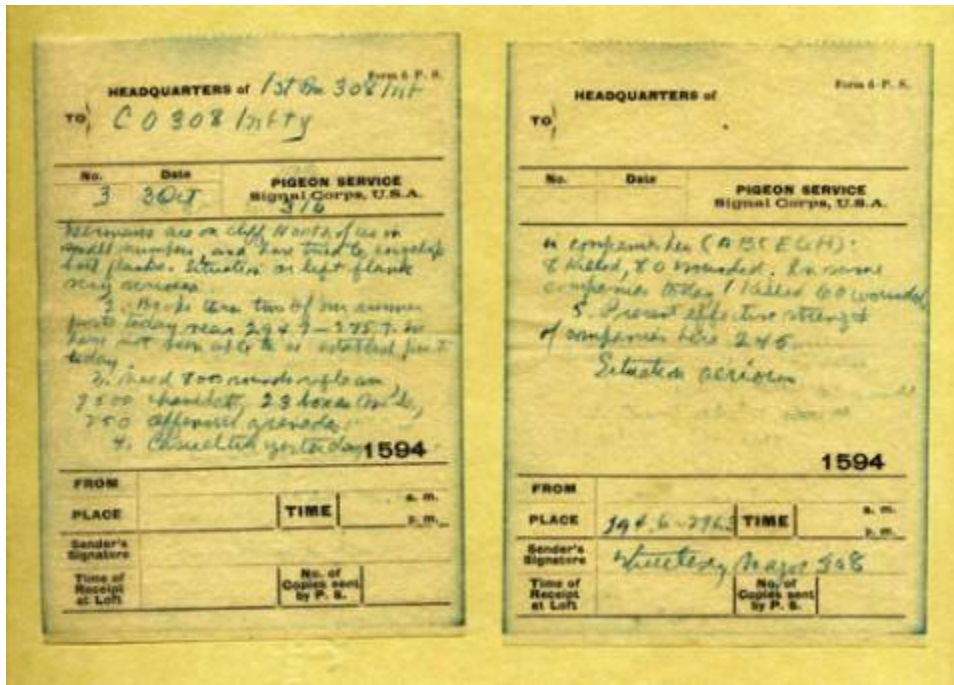 Form 6 P. S.
HEADQUARTERS of 1st Bn 308 Inf
TO C O 308 Infty
No. Date PIGEON SERVICE
3 3 Oct Signal Corps, U.S.A.
Germans are on cliff North of us in
small numbers and have tried to envelop
both flanks. Situation on left flank
very serious.
2. Broke thru two of our runner
posts today near
have not been able to
today.
3. Need 800 rounds rifle am,
boxes
250 offensive grenades.
4. Casualties yesterday 1594
FROM
PLACE TIME a. m.
p. m.
Sender's
Signature
Time of
Receipt
at Loft
No. of
Copies sent
by P. S.
Form 6 P. S.
HEADQUARTERS of
TO
No. Date PIGEON SERVICE
Signal Corps, U.S.A.
in companies here (A B C E G H):
8 killed, 80 wounded. In same
companies today 1 killed 60 wounded
5. Present effective strength
of companies here 245
Situation serious
1594
FROM
PLACE TIME a. m.
p. m.
Sender's
Signature Whittlesey Major 308
Time of
Receipt
at Loft
No. of
Copies sent
by P. S.